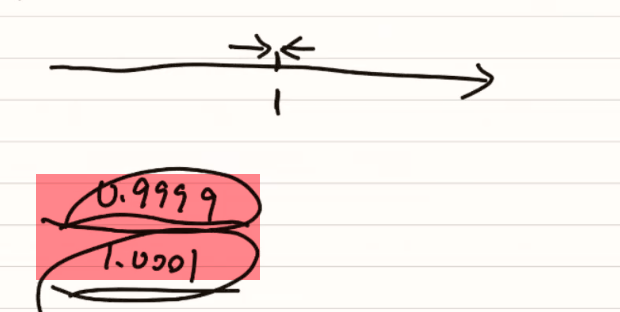 1
0.9999
1.0001